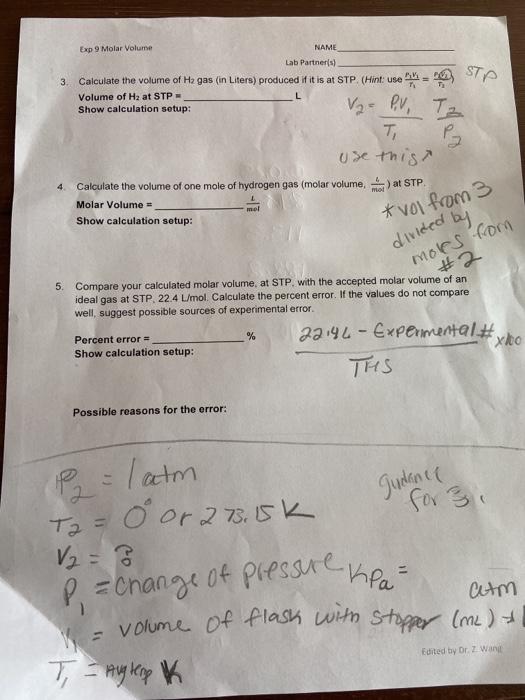 Exp 9 Molar Volume
NAME
Lab Partner(s)
3. Calculate the volume of H₂ gas (in Liters) produced if it is at STP. (Hint: use P₁V₁/T₁ = P₂V₂/T₂) STP
Volume of H₂ at STP = L
Show calculation setup:
V₂ = P₁V₁/T₁ T₂/P₂
use this ↗
4. Calculate the volume of one mole of hydrogen gas (molar volume, L/mol) at STP.
Molar Volume = L/mol
Show calculation setup:
* vol from 3
divided by
moles from
#2
5. Compare your calculated molar volume, at STP, with the accepted molar volume of an
ideal gas at STP, 22.4 L/mol. Calculate the percent error. If the values do not compare
well, suggest possible sources of experimental error.
Percent error = %
Show calculation setup:
22.4L - Expermental # x100
THS
Possible reasons for the error:
guidance
for 3.
P₂ = 1 atm
T₂ = 0° or 273.15 K
V₂ = ?
P₁ = change of pressure KPa = atm
V₁ = volume of flask with stopper (mL) →
T₁ = Avg temp K
Edited by Dr. Z. Wang